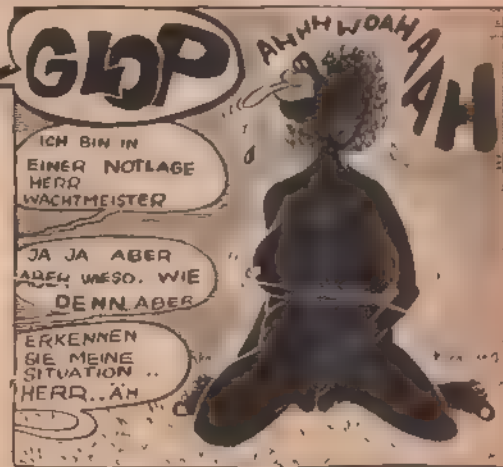 GLOP
AHHH WOAHAAAH
ICH BIN IN
EINER NOTLAGE
HERR
WACHTMEISTER
JA JA ABER
ABER WIESO. WIE
DENN. ABER
ERKENNEN
SIE MEINE
SITUATION..
HERR..ÄH